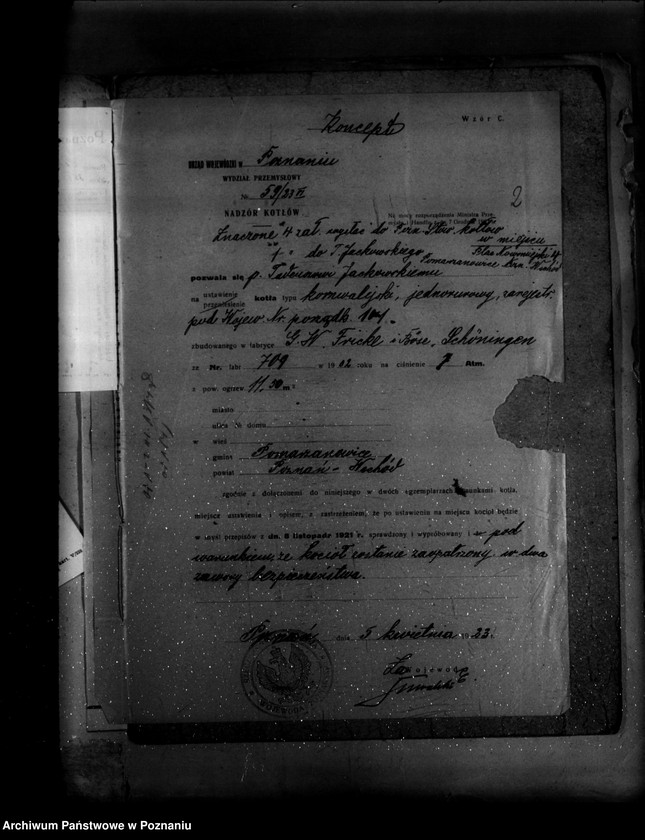 Koncept
Wzór C.
URZĄD WOJEWÓDZKI w Poznaniu
WYDZIAŁ PRZEMYSŁOWY
№ 59/23 VI
NADZÓR KOTŁÓW
2
Na mocy rozporządzenia Ministra Prze-
mysłu i Handlu
Znaczone 4 zał. wysłać do Pozn. Stow. kotłów
w miejscu
do T. Jackowskiego
Pomarzanowice
pozwala się p. Tadeuszowi Jackowskiemu
na ustawienie
przeniesienie kotła typu kornwalijski, jednorurowy, zarejestr.
pod Wojew. Nr. porządk. 104.
zbudowanego w fabryce G. W. Fricke i Böse, Schöningen
za Nr. fabr 709 w 1902 roku na ciśnienie 7 Atm.
z pow. ogrzew 11,30 m²
miasto
ulica № domu
w wieś
gmina Pomarzanowice
powiat Poznań - Wschód
zgodnie z dołączonemi do niniejszego w dwóch egzemplarzach rysunkami kotła,
miejsca ustawienia i opisem, z zastrzeżeniem, że po ustawieniu na miejscu kocioł będzie
w myśl przepisów z dn. 5 listopada 1921 r. sprawdzony i wypróbowany i pod
warunkiem, że kocioł zostanie zaopatrzony w dwa
zawory bezpieczeństwa.
Poznań, dnia 5 kwietnia 1923.
Za Wojewodę
Archiwum Państwowe w Poznaniu